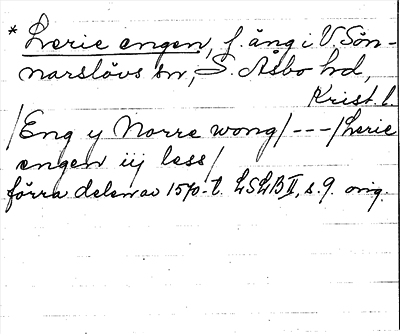 * Lerie engen, f. äng i V. Sön-
narslövs sn, S. Åsbo hd,
Krist. l.
/Eng y Norre wong/ --- /Lerie
engen iij less/
förra delen av 1570-t. LSLB II, s. 9. orig.